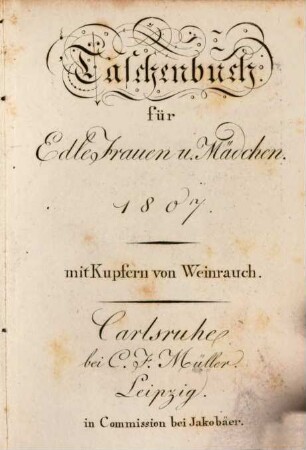 Taschenbuch
für
Edle Frauen u. Mädchen.
1807.
mit Kupfern von Weinrauch.
Carlsruhe
bei C. F. Müller.
Leipzig.
in Commission bei Jakobäer.